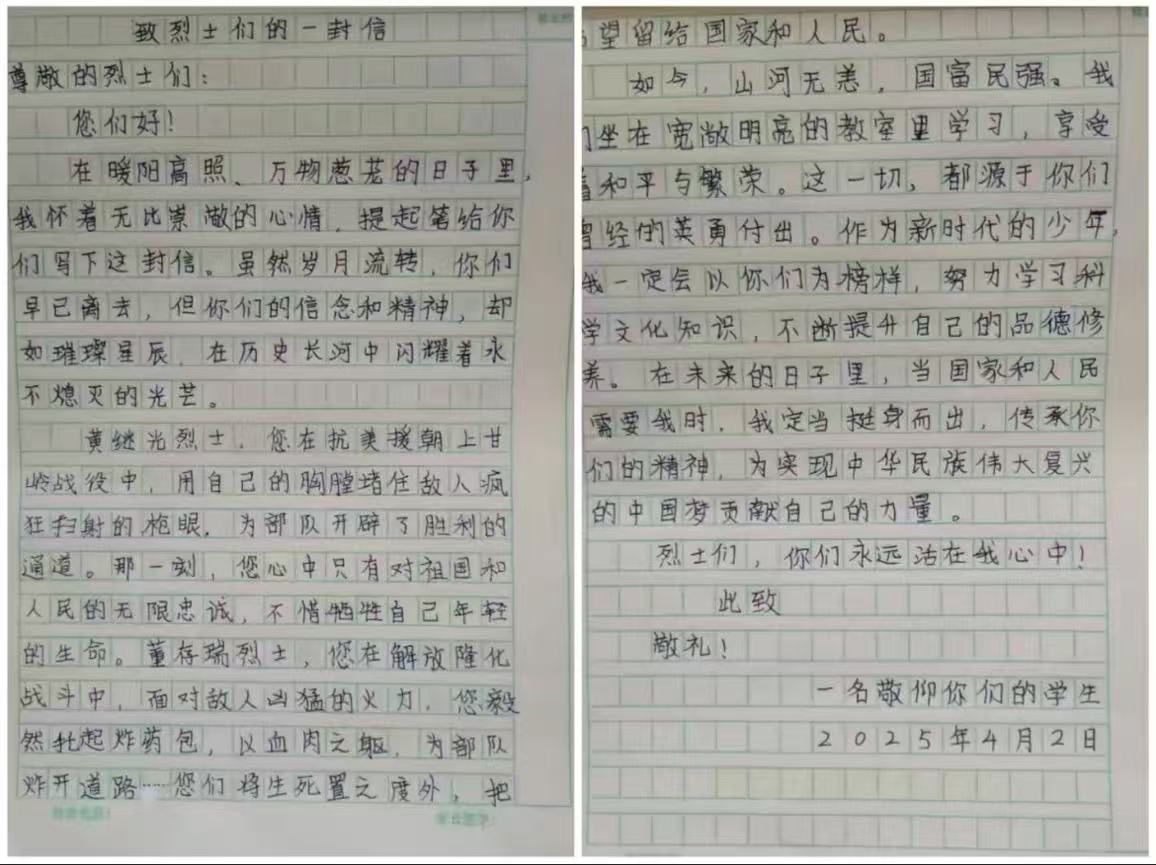 致烈士们的一封信
尊敬的烈士们：
您们好！
在暖阳高照、万物葱茏的日子里，
我怀着无比崇敬的心情，提起笔给你
们写下这封信。虽然岁月流转，你们
早已离去，但你们的信念和精神，却
如璀璨星辰，在历史长河中闪耀着永
不熄灭的光芒。
黄继光烈士，您在抗美援朝上甘
岭战役中，用自己的胸膛堵住敌人疯
狂扫射的枪眼，为部队开辟了胜利的
通道。那一刻，您心中只有对祖国和
人民的无限忠诚，不惜牺牲自己年轻
的生命。董存瑞烈士，您在解放隆化
战斗中，面对敌人凶猛的火力，您毅
然扎起炸药包，以血肉之躯，为部队
炸开道路……您们将生死置之度外，把
望留给国家和人民。
如今，山河无恙，国富民强。我
们坐在宽敞明亮的教室里学习，享受
着和平与繁荣。这一切，都源于你们
曾经的英勇付出。作为新时代的少年，
我一定会以你们为榜样，努力学习科
学文化知识，不断提升自己的品德修
养。在未来的日子里，当国家和人民
需要我时，我定当挺身而出，传承你
们的精神，为实现中华民族伟大复兴
的中国梦贡献自己的力量。
烈士们，你们永远活在我心中！
此致
敬礼！
一名敬仰你们的学生
2025年4月2日